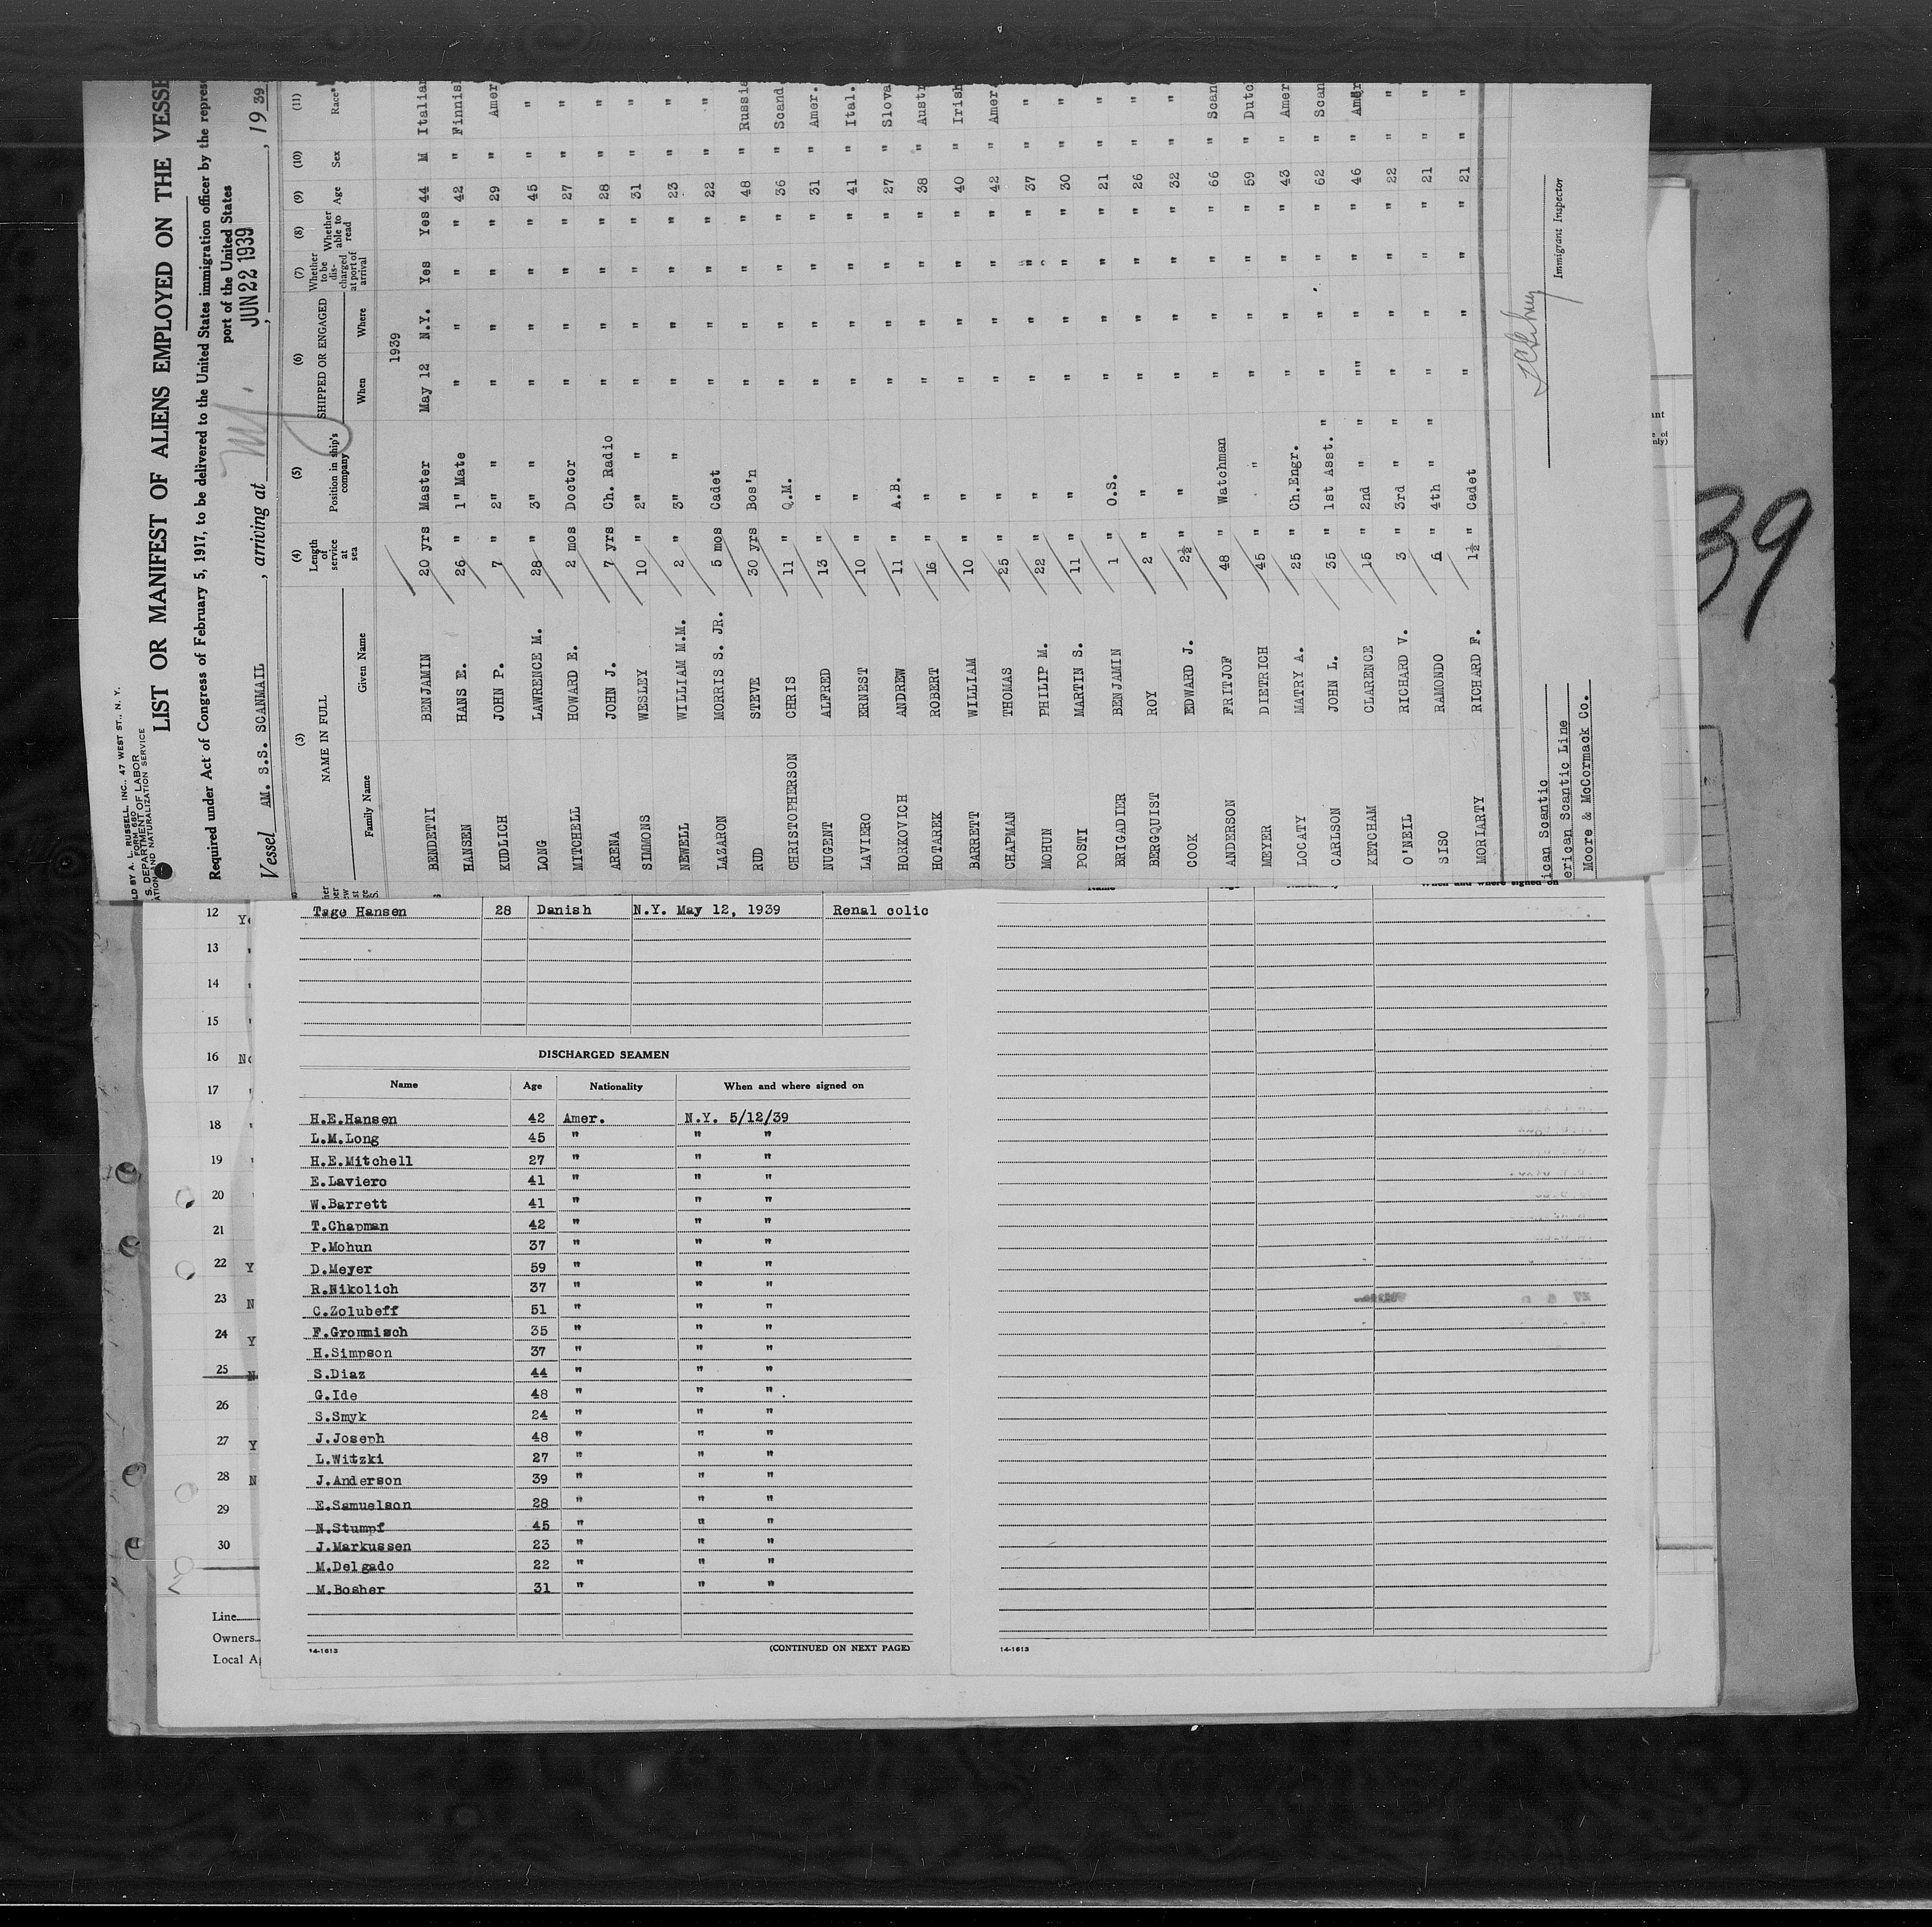 LD BY A. L. RUSSELL, INC., 47 WEST ST., N. Y.
FORM 680
S. DEPARTMENT OF LABOR
ATION AND NATURALIZATION SERVICE
LIST OR MANIFEST OF ALIENS EMPLOYED ON THE VESSE
Required under Act of Congress of February 5, 1917, to be delivered to the United States immigration officer by the repres
port of the United States
Vessel AM. S.S. SCANMAIL, arriving at JUN 22 1939, 1939
(3) (4) (5) (6) (7) (8) (9) (10) (11)
NAME IN FULL Length of service at sea Position in ship's company SHIPPED OR ENGAGED Whether to be discharged at port of arrival Whether able to read Age Sex Race*
Family Name Given Name When Where
1939
BENDETTI BENJAMIN 20 yrs Master May 12 N.Y. Yes Yes 44 M Italian
HANSEN HANS E. 26 " 1" Mate " " " " 42 " Finnis
KUDLICH JOHN P. 7 " 2" " " " " " 29 " Amer
LONG LAWRENCE M. 28 " 3" " " " " " 45 " "
MITCHELL HOWARD E. 2 mos Doctor " " " " 27 " "
ARENA JOHN J. 7 yrs Ch. Radio " " " " 28 " "
SIMMONS WESLEY 10 " 2" " " " " " 31 " "
NEWELL WILLIAM M.M. 2 " 3" " " " " " 23 " "
LAZARON MORRIS S. JR. 5 mos Cadet " " " " 22 " "
RUD STEVE 30 yrs Bos'n " " " " 48 " Russia
CHRISTOPHERSON CHRIS 11 " Q.M. " " " " 36 " Scand
NUGENT ALFRED 13 " " " " " " 31 " Amer.
LAVIERO ERNEST 10 " " " " " " 41 " Ital.
HORKOVICH ANDREW 11 " A.B. " " " " 27 " Slova
HOTAREK ROBERT 16 " " " " " " 38 " Austr
BARRETT WILLIAM 10 " " " " " " 40 " Irish
CHAPMAN THOMAS 25 " " " " " " 42 " Amer.
MOHUN PHILIP M. 22 " " " " " " 37 " "
POSTI MARTIN S. 11 " " " " " " 30 " "
BRIGADIER BENJAMIN 1 " O.S. " " " " 21 " "
BERGQUIST ROY 2 " " " " " " 26 " "
COOK EDWARD J. 2½ " " " " " " 32 " "
ANDERSON FRITJOF 48 " Watchman " " " " 66 " Scan
MEYER DIETRICH 45 " " " " " " 59 " Dutc
LOCATY MATRY A. 25 " Ch.Engr. " " " " 43 " Amer
CARLSON JOHN L. 35 " 1st Asst. " " " " " 62 " Scan
KETCHAM CLARENCE 15 " 2nd " " "" " " " 46 " Amer
O'NEIL RICHARD V. 3 " 3rd " " " " " " 22 " "
SISO RAMONDO 6 " 4th " " " " " " 21 " "
MORIARTY RICHARD F. 1½ " Cadet " " " " 21 " "
ican Scantic
erican Scantic Line
Moore & McCormack Co.
Immigrant Inspector
39
When and where signed on
Tage Hansen 28 Danish N.Y. May 12, 1939 Renal colic
DISCHARGED SEAMEN
Name Age Nationality When and where signed on
H.E.Hansen 42 Amer. N.Y. 5/12/39
L.M.Long 45 " " "
H.E.Mitchell 27 " " "
E.Laviero 41 " " "
W.Barrett 41 " " "
T.Chapman 42 " " "
P.Mohun 37 " " "
D.Meyer 59 " " "
R.Nikolich 37 " " "
C.Zolubeff 51 " " "
F.Grommisch 35 " " "
H.Simpson 37 " " "
S.Diaz 44 " " "
G.Ide 48 " " "
S.Smyk 24 " " "
J.Joseph 48 " " "
L.Witzki 27 " " "
J.Anderson 39 " " "
E.Samuelson 28 " " "
N.Stumpf 45 " " "
J.Markussen 23 " " "
M.Delgado 22 " " "
M.Bosher 31 " " "
14-1613 (CONTINUED ON NEXT PAGE)
14-1613
12 Ye
13
14
15
16 No
17
18
19
20
21
22 Y
23 N
24 Y
25 N
26
27 Y
28 N
29
30
Line
Owners
Local A